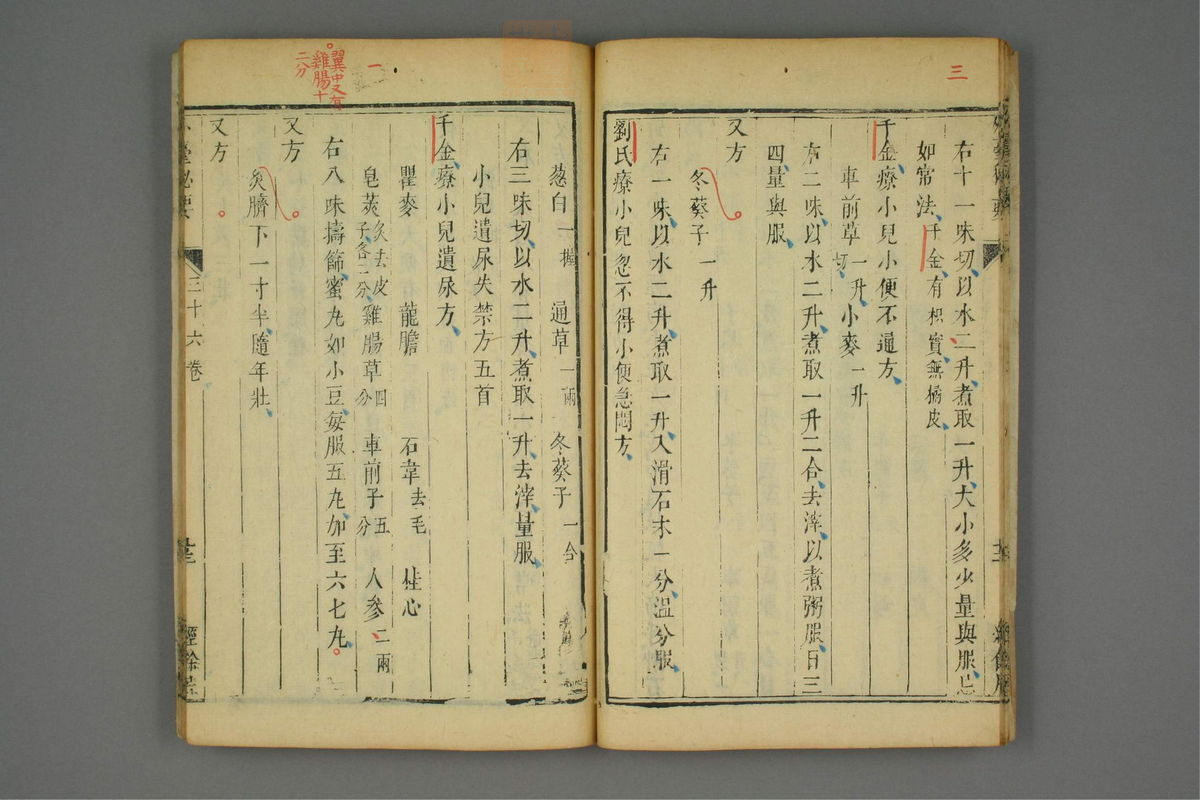 三
右十一味切以水二升煮取一升大小多少量與服忌
如常法千金有枳實無橘皮
千金療小兒小便不通方
車前草切一升小麥一升
右二味以水二升煮取一升二合去滓以煮粥服日三
四量與服
又方
冬葵子一升
右一味以水二升煮取一升入滑石末一分溫分服
劉氏療小兒忽不得小便急悶方
葱白一握 通草一兩 冬葵子一合
右三味切以水二升煮取一升去滓量服
小兒遺尿失禁方五首
千金療小兒遺尿方
瞿麥 龍膽 石韋去毛 桂心
皂莢炙去皮子各二分 雞腸草四分 車前子五分 人參二兩
右八味擣篩蜜丸如小豆每服五丸加至六七丸
又方
灸臍下一寸半隨年壯
又方
臺秘要 三十六卷 經餘居
一
翼中又有
雞腸十
二分